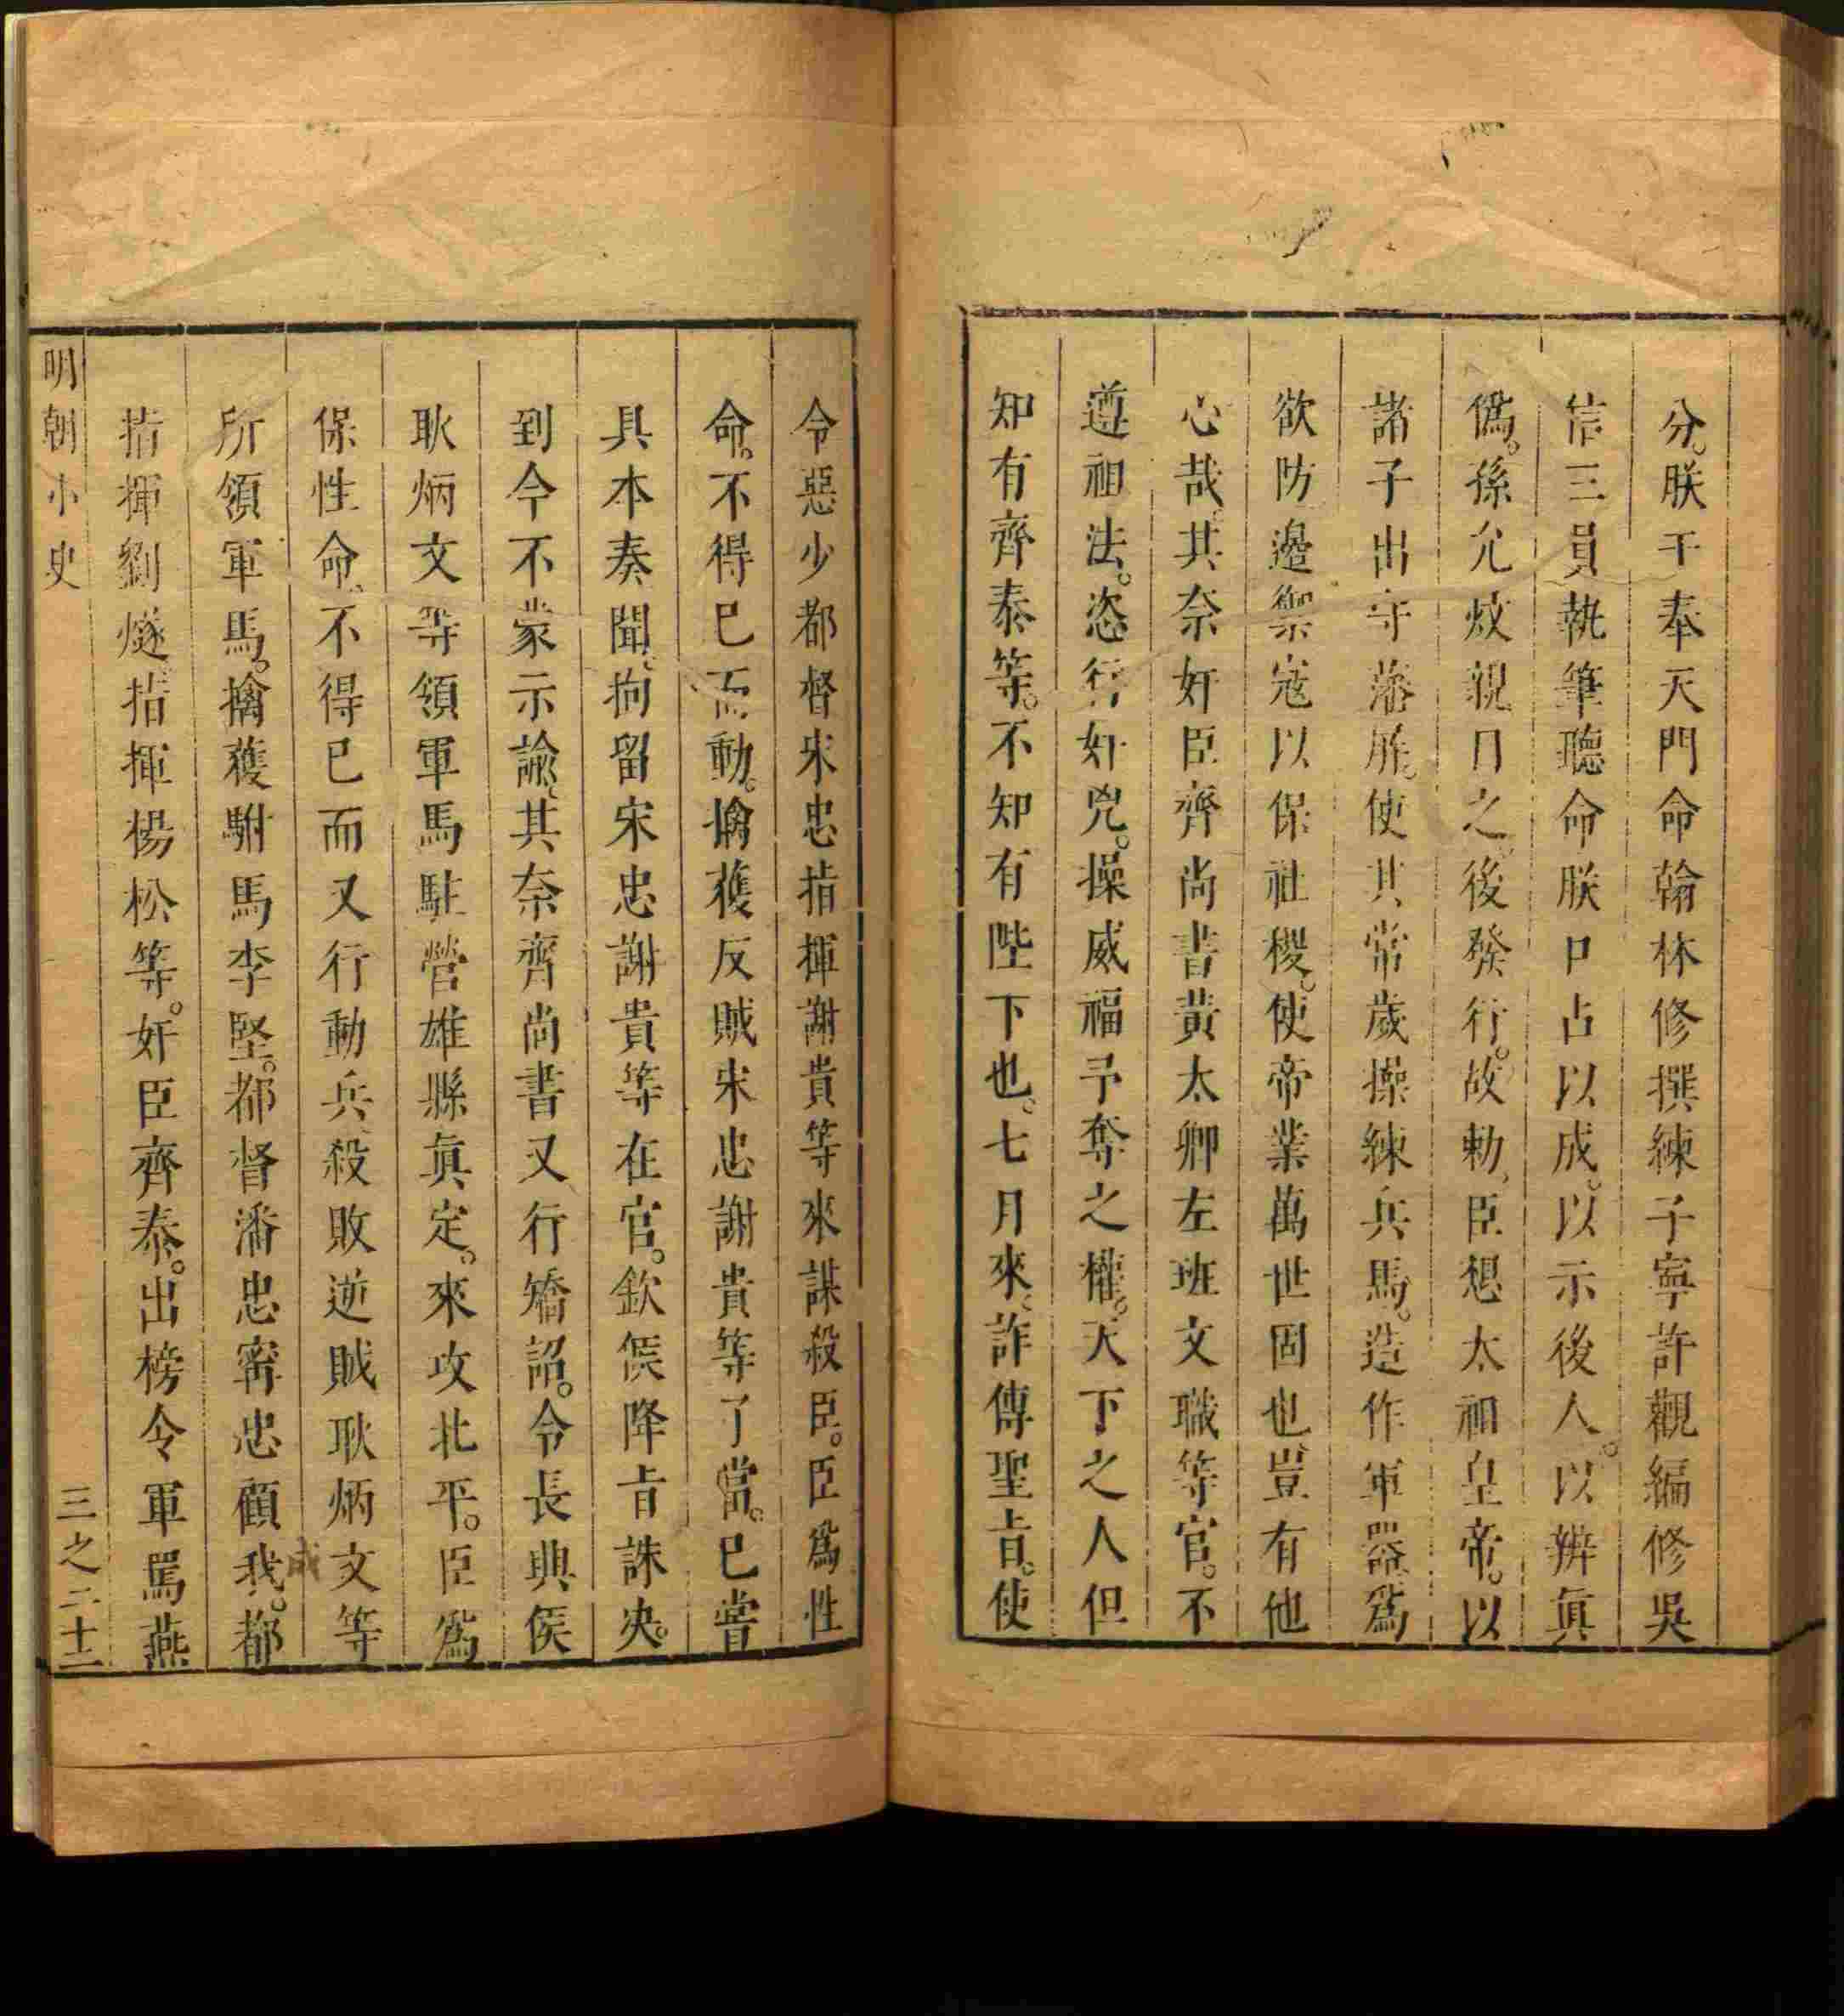 分。朕于奉天門命翰林修撰練子寧許觀編修吳
信三員執筆聽命朕口占以成。以示後人。以辨眞
僞。孫允炆親目之。後發行。故勅、臣想太祖皇帝。以
諸子出守藩屏。使其常歲操練兵馬。造作軍器爲
欲防邊禦寇以保社稷。使帝業萬世固也豈有他
心哉。其奈奸臣齊尚書黃太卿左班文職等官。不
遵祖法。恣行奸兇。操威福予奪之權。天下之人但
知有齊泰等。不知有陛下也。七月來、詐傳聖旨。使
令惡少都督宋忠指揮謝貴等來謀殺臣。臣爲性
命。不得已而動。擒獲反賊宋忠謝貴等了當。已嘗
具本奏聞、拘留宋忠謝貴等在官。欽俟降旨誅决。
到今不蒙示諭、其奈齊尚書又行矯詔。令長興侯
耿炳文等領軍馬駐營雄縣眞定。來攻北平。臣爲
保性命、不得已而又行動兵、殺敗逆賊耿炳文等
所領軍馬。擒獲駙馬李堅。都督潘忠甯忠顧我。都
成
指揮劉燧指揮楊松等。奸臣齊泰。出榜令軍罵燕
明朝小史
三之二十二